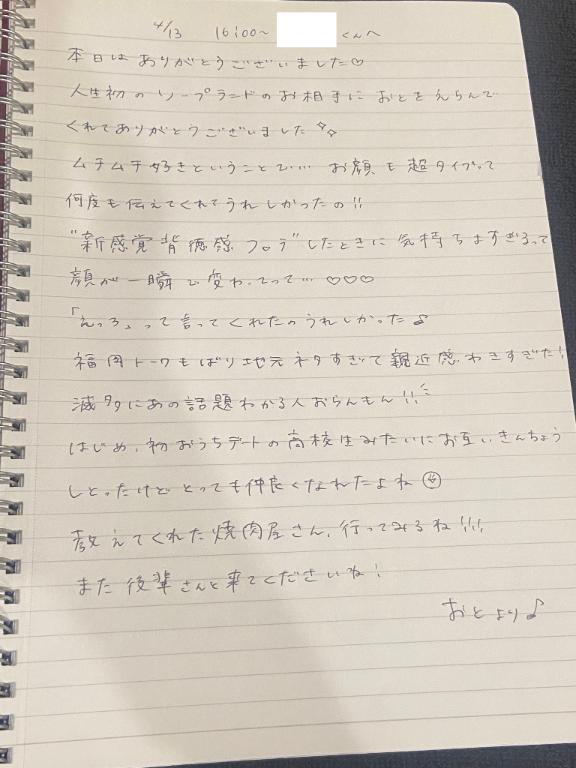 4/13 16:00~ くんへ
本日はありがとうございました♡
人生初のソープランドのお相手におとをえらんで
くれてありがとうございました✧✧
ムチムチ好きということで… お顔も超タイプって
何度も伝えてくれてうれしかったの!!
"新感覚背徳感フロラ"したときに気持ちよすぎるって
顔が一瞬で変わってって… ♡♡♡
「えっろ」って言ってくれたのうれしかった♪
福岡トークもばり地元ネタすぎて親近感わきすぎた!
滅多にあの話題わかる人おらんもん!!
はじめ、初おうちデートの高校生みたいにお互いきんちょう
しとったけどとっても仲良くなれたよね
教えてくれた焼肉屋さん、行ってみるね!!!
また後輩さんと来てくださいね!
おとより♪